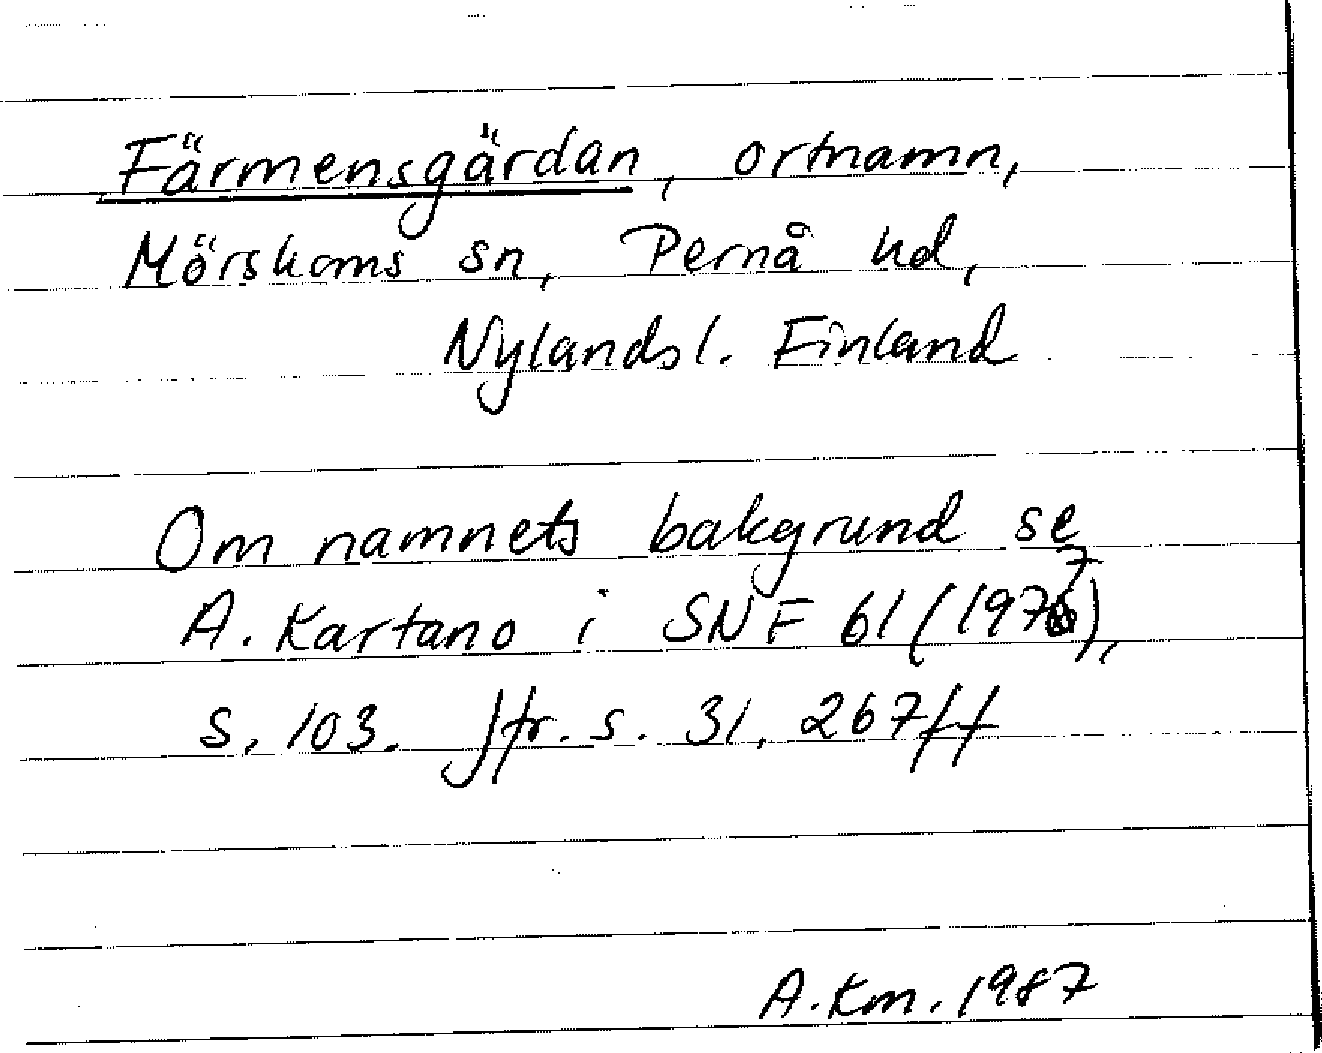 Färmensgärdan, ortnamn,
Mörskoms sn, Pernå hd,
Nylands l. Finland
Om namnets bakgrund se
A. Kartano i SNF 61 (1977),
s. 103. Jfr. s. 31, 267 ff
A.Km. 1987